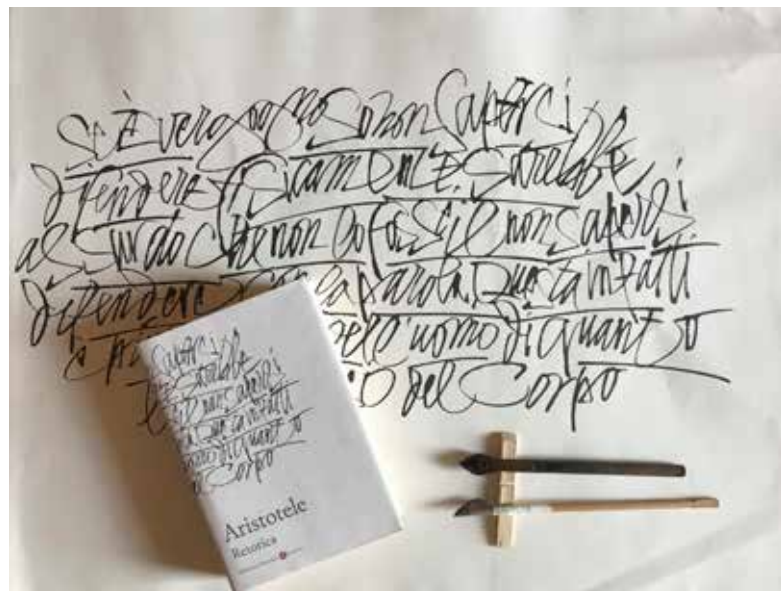 Se È vergognoso non Saperci
difendere fisicamente. Sarebbe
assurdo che non lo fosse il non Saperci
difendere la parola. Questa infatti
dell'uomo di quanto
del Corpo
Saperci
Sarebbe
il non saperci
Questa infatti
uomo di quanto
Corpo
Aristotele
Retorica